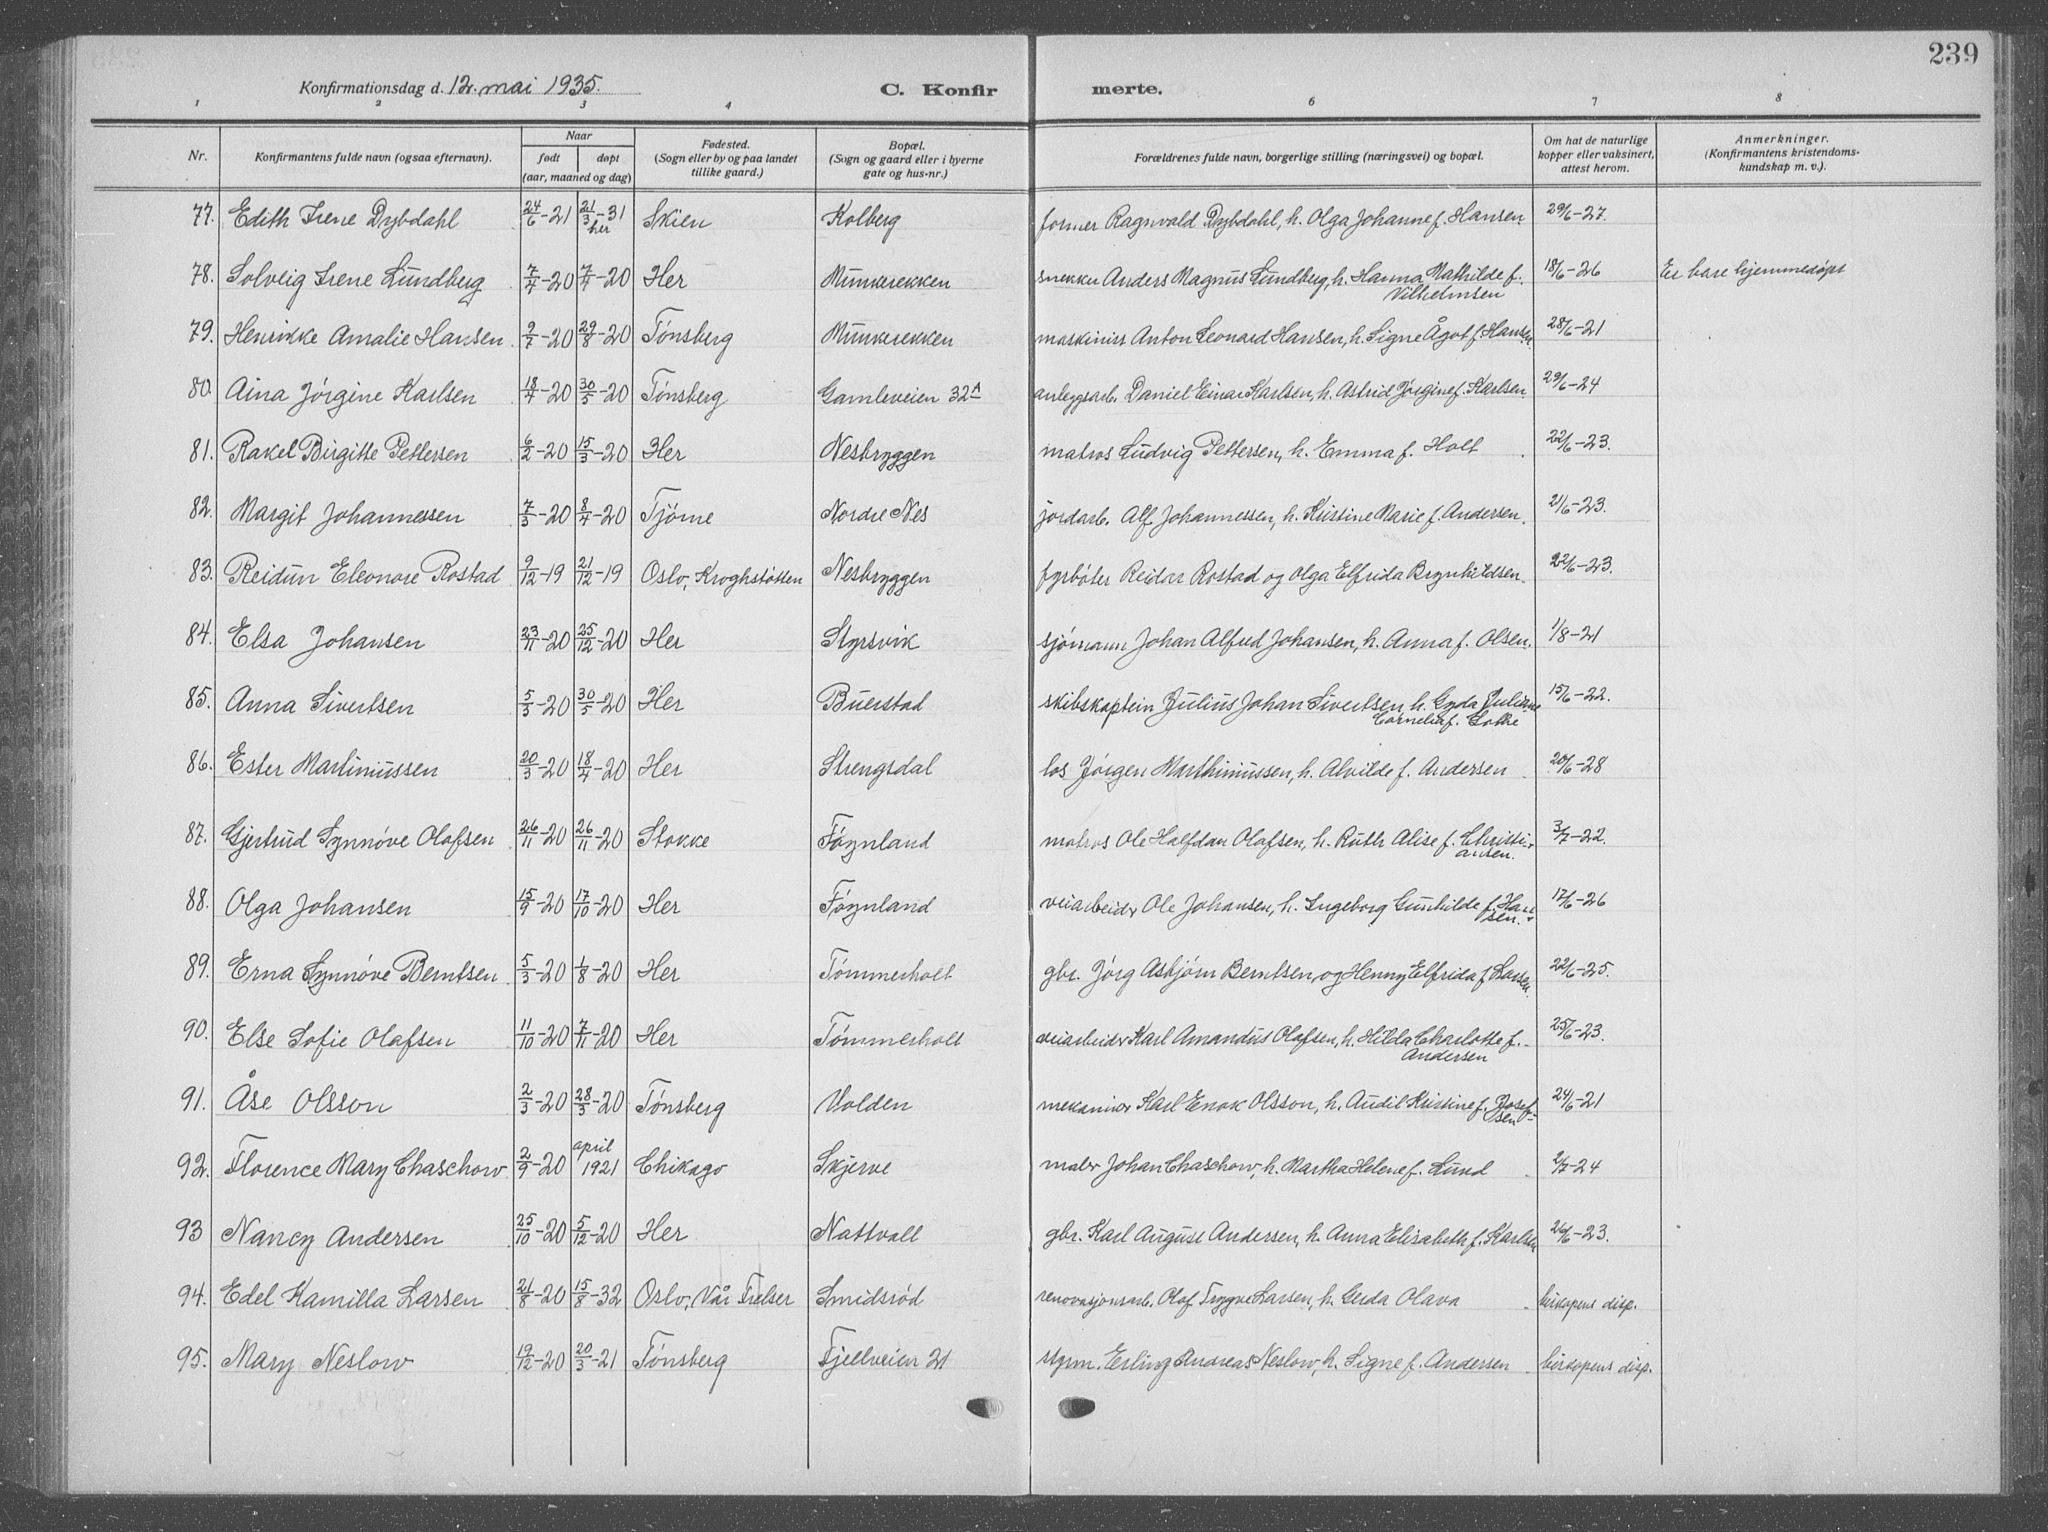 239
Konfirmationsdag d. 12. mai 1935. C. Konfir merte.
1 2 3 4 5 6 7 8
Nr. Konfirmantens fulde navn (ogsaa efternavn). Naar født døpt (aar, maaned og dag) Fødested. (Sogn eller by og paa landet tillike gaard.) Bopæl. (Sogn og gaard eller i byerne gate og hus-nr.) Forældrenes fulde navn, borgerlige stilling (næringsvei) og bopæl. Om hat de naturlige kopper eller vaksinert, attest herom. Anmerkninger. (Konfirmantens kristendoms- kundskap m. v.).
77. Edith Irene Dybdahl 24/6-21 21/3-31 her Skien Kolberg former Ragnvald Dybdahl, h. Olga Johanne f. Hansen 29/6-27.
78. Solveig Irene Lundberg 7/4-20 7/4-20 Her Munkerekken snekker Anders Magnus Lundberg, h. Hanna Mathilde f. Vilhelmsen 18/6-26 Er bare hjemmedøpt
79. Henrikke Amalie Hansen 9/7-20 29/8-20 Tønsberg Munkerekken maskinist Anton Leonard Hansen, h. Signe Ågot f. Hansen 28/6-21
80. Aina Jørgine Karlsen 18/4-20 30/5-20 Tønsberg Gamleveien 32A anleggsarb. Daniel Einar Karlsen, h. Astrid Jørgine f. Karlsen 29/6-24
81. Rakel Birgitte Pettersen 6/2-20 15/3-20 Her Nesbryggen matros Ludvig Pettersen, h. Emma f. Holt 22/6-23.
82. Margit Johannessen 7/3-20 8/4-20 Tjøme Nordre Nes jordarb. Alf Johannessen, h. Kristine Marie f. Andersen. 21/6-23.
83. Reidun Eleonore Rostad 9/12-19 21/12-19 Oslo, Kroghstøtten Nesbryggen fyrbøter Reidar Rostad og Olga Elfrida Brynhildsen 22/6-23.
84. Elsa Johansen 23/11-20 25/12-20 Her Styrsvik sjømann Johan Alfred Johansen, h. Anna f. Olsen. 1/8-21
85. Anna Sivertsen 5/3-20 30/5-20 Her Buerstad skibskaptein Julius Johan Sivertsen h. Gyda Juliane Cornelia f. Gothe 15/6-22.
86. Ester Martinussen 20/3-20 18/4-20 Her Strengsdal los Jørgen Marthinussen, h. Alvilde f. Andersen 20/6-28
87. Gjertrud Synnøve Olafsen 26/11-20 26/11-20 Stokke Føynland matros Ole Halfdan Olafsen, h. Ruth Alise f. Christi-ansen. 3/7-22.
88. Olga Johansen 15/9-20 17/10-20 Her Føynland veiarbeider Ole Johansen, h. Ingeborg Gunhilde f. Han-sen. 17/6-26
89. Erna Synnøve Berntsen 5/3-20 1/8-20 Her Tømmerholt gbr. Jørg Asbjørn Berntsen, og Henny Elfrida f. Larsen. 22/6-25.
90. Else Sofie Olafsen 11/10-20 7/11-20 Her Tømmerholt veiarbeider Karl Amandus Olafsen, h. Hilda Charlotte f. Andersen 25/6-23.
91. Åse Olsson 2/3-20 28/3-20 Tønsberg Volden mekaniker Karl Enok Olsson, h. Audil Kristine f. Josef-sen 24/6-21
92. Florence Mary Chaschow 2/9-20 april 1921 Chikago Skjerve maler Johan Chaschow, h. Martha Helene f. Lund 2/7-24
93 Nancy Andersen 25/10-20 5/12-20 Her Nattvall gbr. Karl August Andersen, h. Anna Elisabeth f. Karlsen 26/6-23.
94. Edel Kamilla Larsen 21/8-20 15/8-32 Oslo, Vår Frelser Smidsrød renovasjonsarb. Olaf Trygve Larsen, h. Gerda Olava biskopens disp.
95. Mary Neslow 19/12-20 20/3-21 Tønsberg Fjellveien 21 styrm. Erling Andreas Neslow, h. Signe f. Andersen biskopens disp.